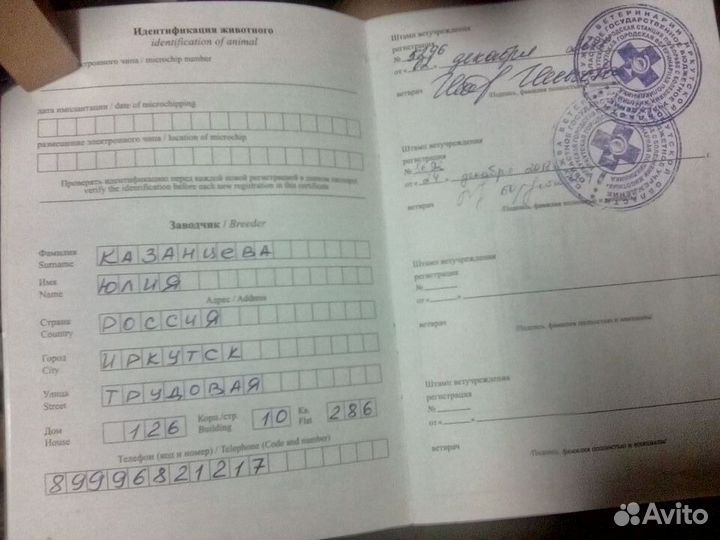 Идентификация животного
identification of animal
ктронного чипа / microchip number
дата имплантации / date of microchipping
размещение электронного чипа / location of microchip
Проверять идентификацию перед каждой новой регистрацией в данном паспорте
verify the identification before each new registration in this certificate
Заводчик / Breeder
Фамилия
Surname
КАЗАНЦЕВА
Имя
Name
ЮЛИЯ
Адрес / Address
Страна
Country
РОССИЯ
Город
City
ИРКУТСК
Улица
Street
ТРУДОВАЯ
Дом
House
126
Корп./стр.
Building
10
Кв.
Flat
286
Телефон (код и номер) / Telephone (Code and number)
89996821217
Штамп ветучреждения
регистрация
№
от « 02 декабря
ветврач
/Подпись, фамилия
Штамп ветучреждения
регистрация
№
от « 24 » декабря
ветврач
/Подпись, фамилия полностью и
Штамп ветучреждения
регистрация
№
от « »
г.
ветврач
/Подпись, фамилия полностью и инициалы/
Штамп ветучреждения
регистрация
№
от « »
г.
ветврач
/Подпись, фамилия полностью и инициалы/
Avito